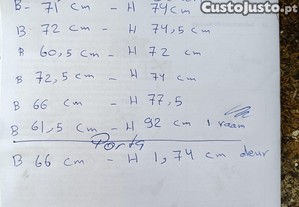 Custojusto.pt
B - 71 cm - H 74 cm
B 72 cm - H 74,5 cm
B 60,5 cm - H 72 cm
B 72,5 cm - H 74 cm
B 66 cm - H 77,5
B 61,5 cm - H 92 cm 1 raam
Porta
B 66 cm - H 1,74 cm deur